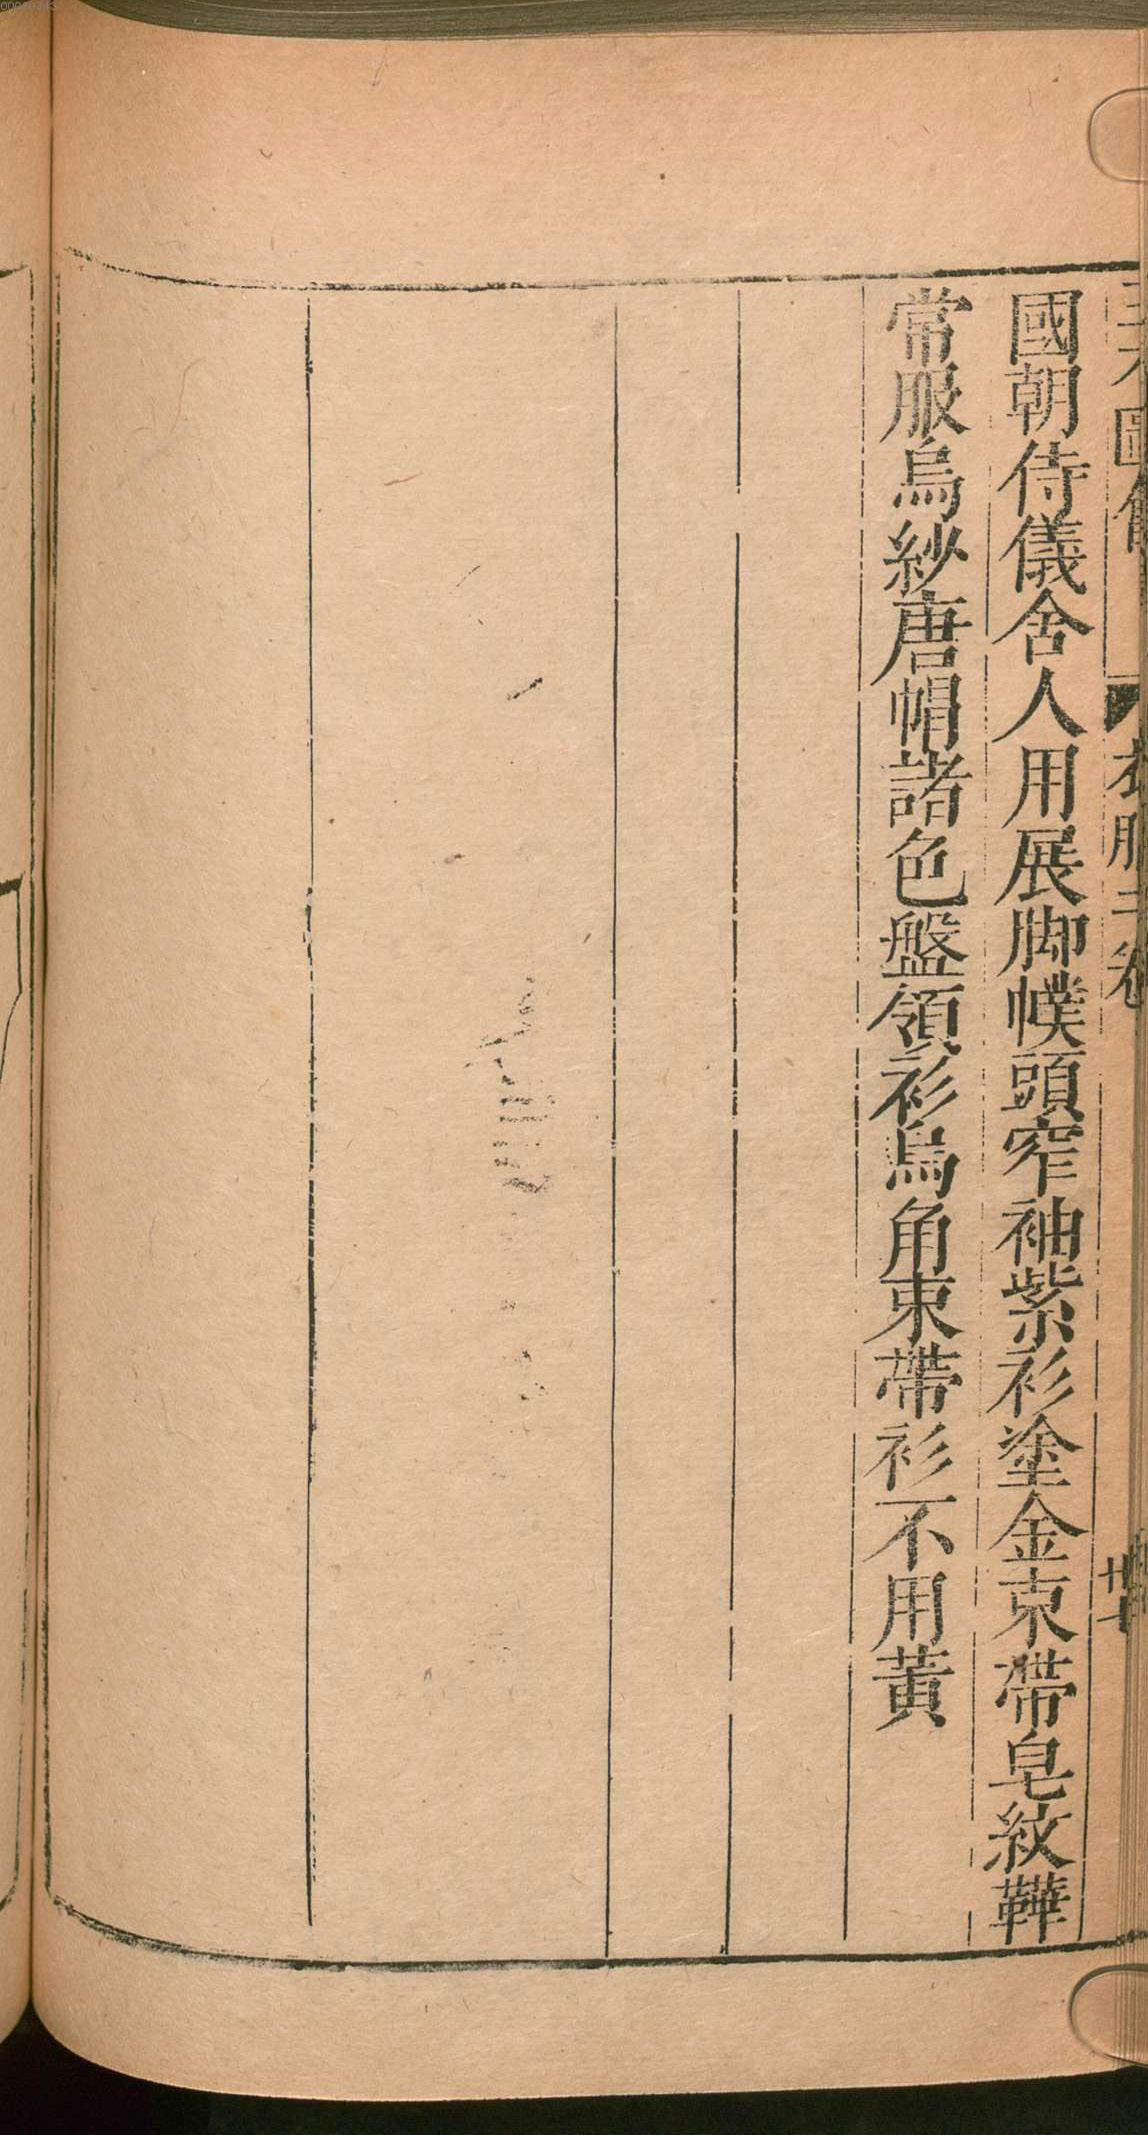 三才圖會 衣服三卷 廿七
國朝侍儀舍人用展脚幞頭窄袖紫衫塗金束帶皂紋鞾
常服烏紗唐帽諸色盤領衫烏角束帶衫不用黃